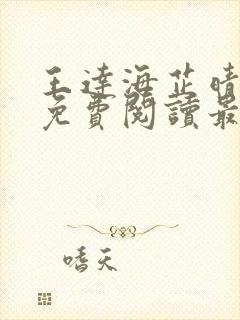 王達海芷晴
免費閱讀最
嗜天